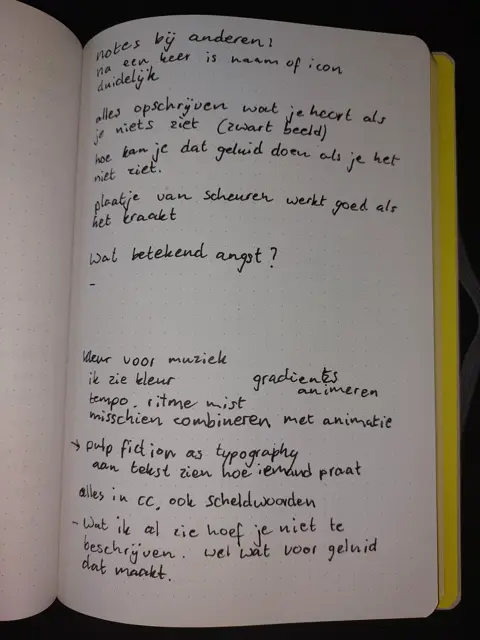 notes bij anderen!
na een keer is naam of icon
duidelijk
alles opschrijven wat je hoort als
je niets ziet (zwart beeld)
hoe kan je dat geluid doen als je het
niet ziet.
plaatje van scheuren werkt goed als
het kraakt
Wat betekend angst?
-
kleur voor muziek
ik zie kleur gradients
animeren
tempo. ritme mist
misschien combineren met animatie
→ pulp fiction as typography
aan tekst zien hoe iemand praat
alles in CC, ook scheldwoorden
- Wat ik al zie hoef je niet te
beschrijven. wel wat voor geluid
dat maakt.